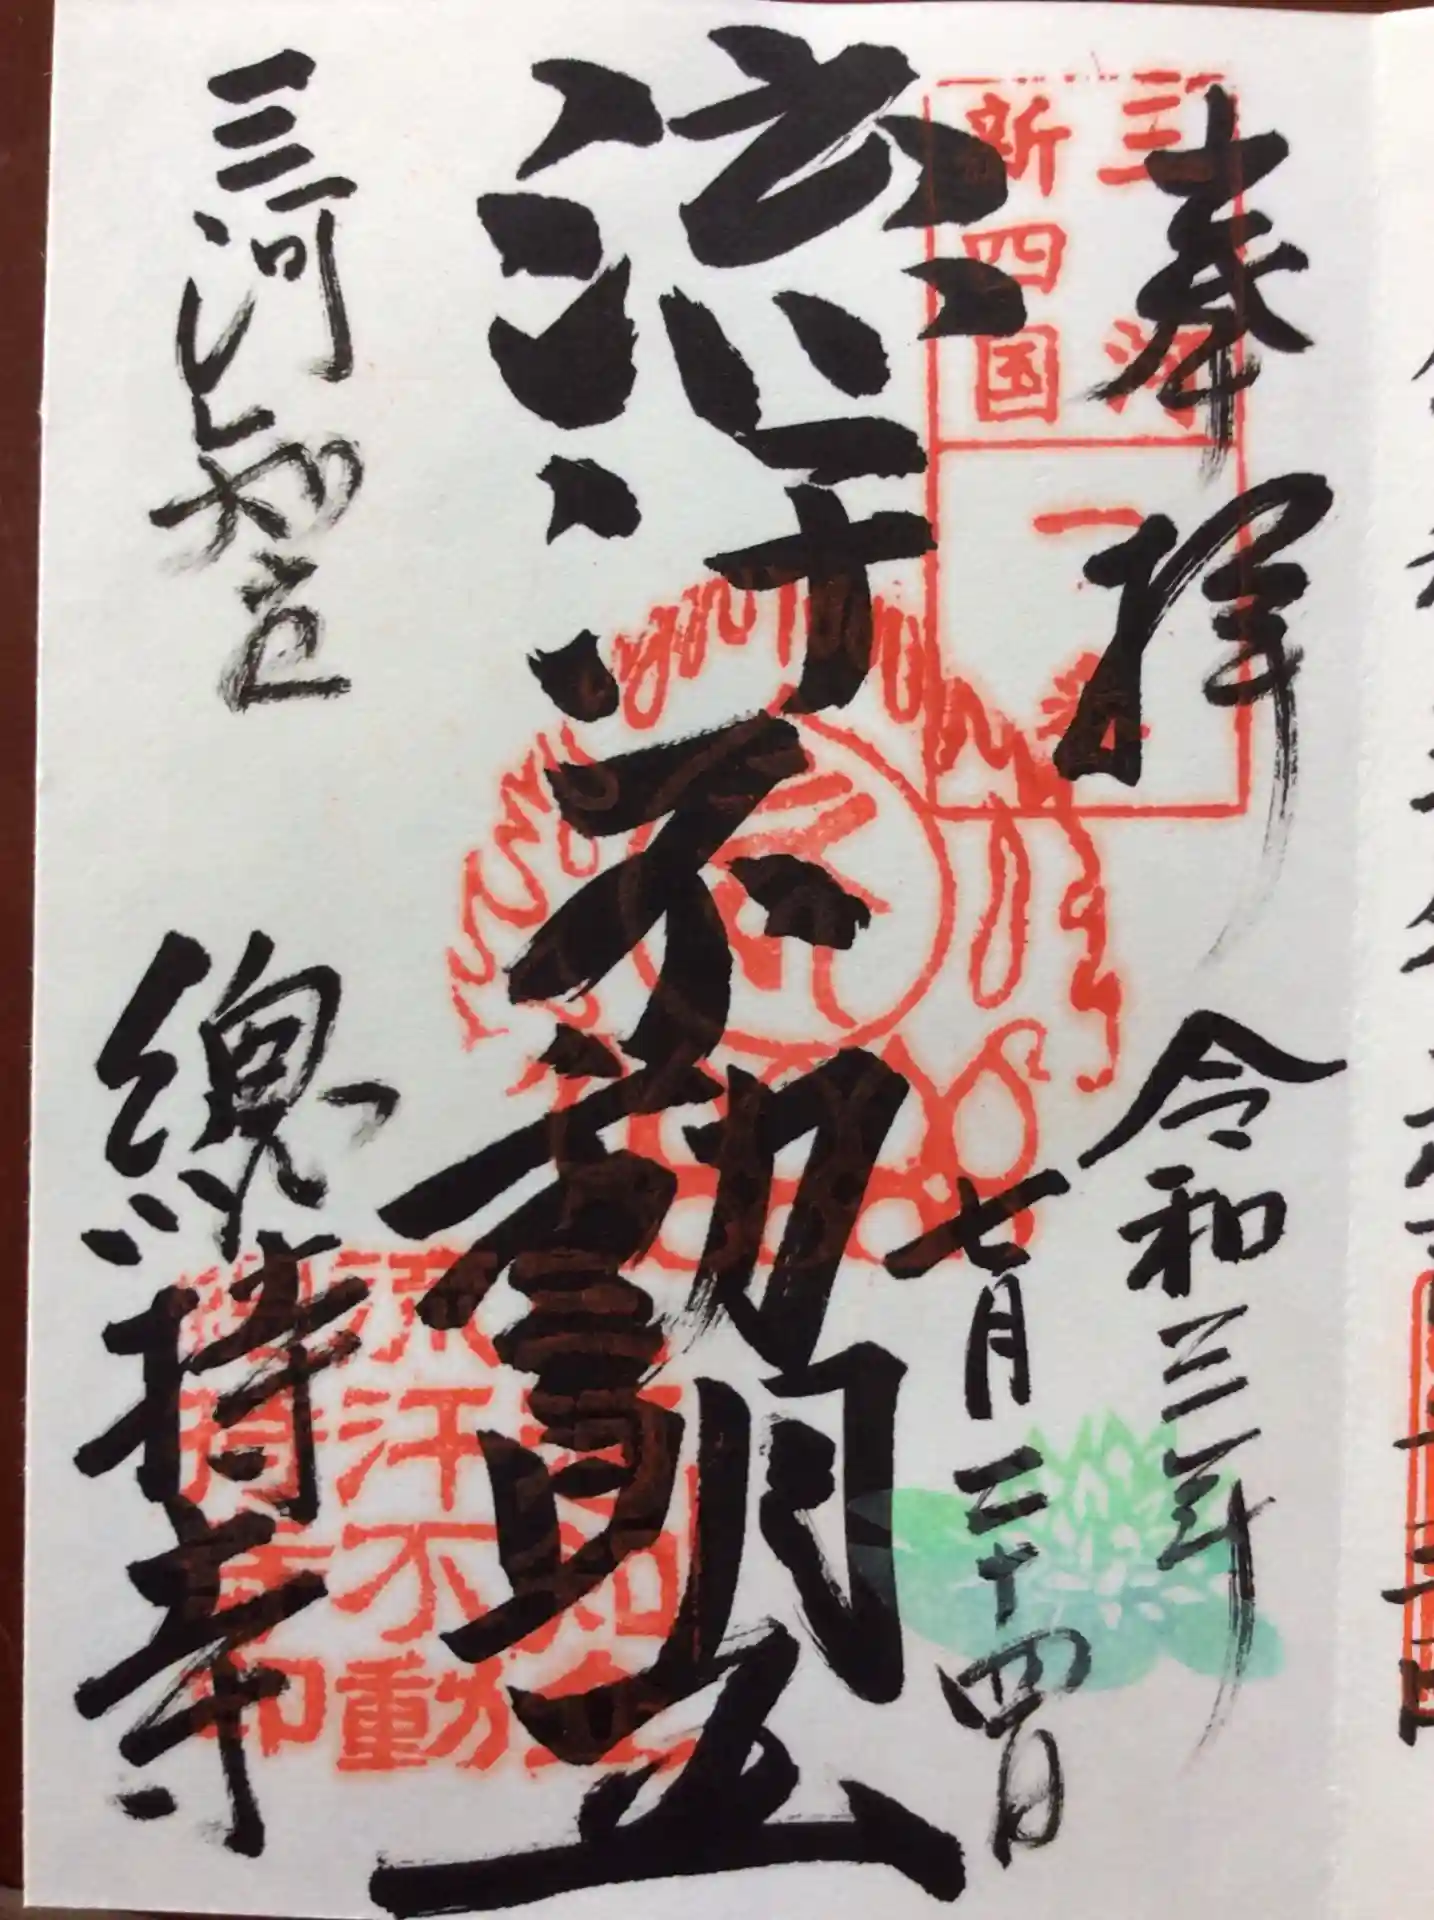 奉拝
令和三年
七月二十四日
三河
新四国
一
流汗不動明王
流汗不動
三河知立
總持寺